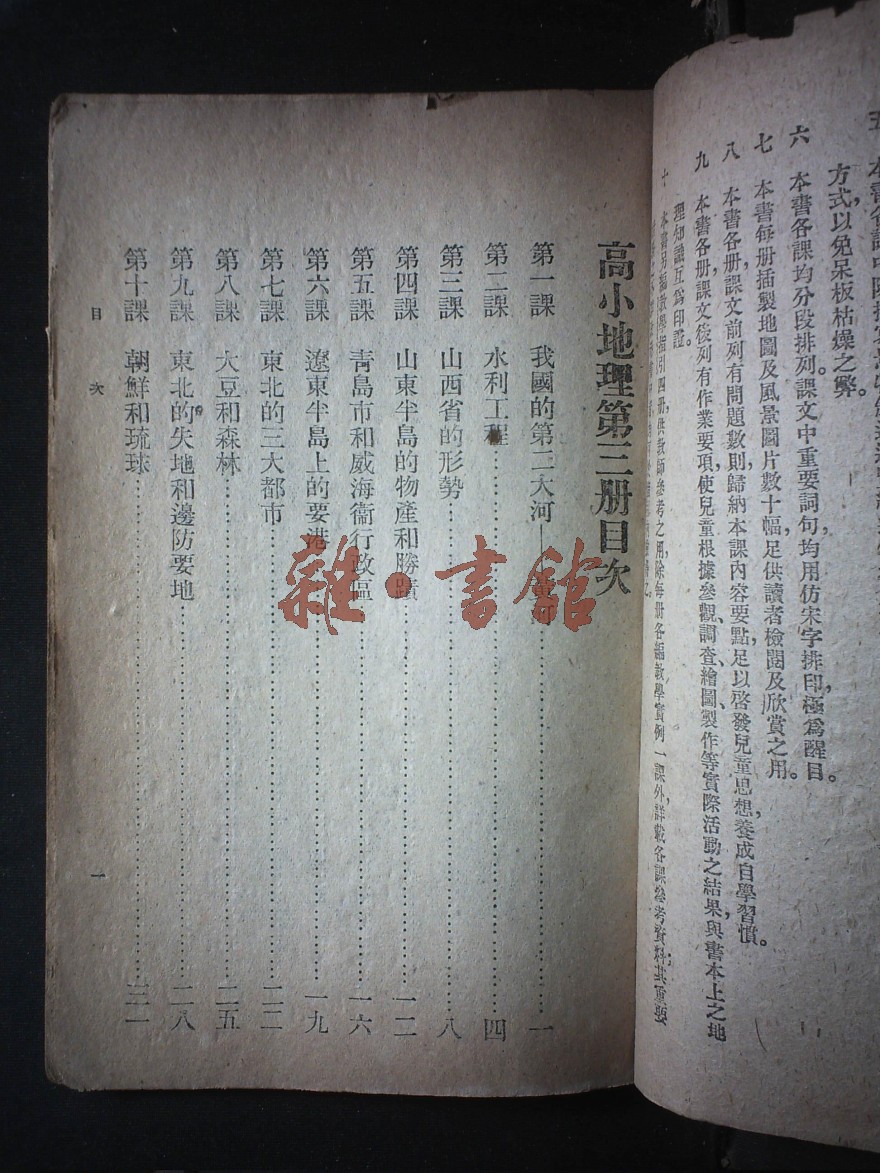 方式以免呆板枯燥之弊。
六 本書各課均分段排列。課文中重要詞句,均用仿宋字排印,極爲醒目。
七 本書每册插製地圖及風景圖片數十幅,足供讀者檢閱及欣賞之用。
八 本書各册課文前列有問題數則,歸納本課內容要點,足以啓發兒童思想,養成自學習慣。
九 本書各册課文後列有作業要項,使兒童根據參觀、調查、繪圖、製作等實際活動之結果,與書本上之地
理知識互爲印證。
十 本書另編教學指引四册,供教師參考之用,除每册各編教學實例一課外,詳載各課參考資料,其重要
高小地理第三册目次
第一課 我國的第二大河——黃河 一
第二課 水利工程 四
第三課 山西省的形勢 八
第四課 山東半島的物產和勝蹟 一二
第五課 靑島市和威海衞行政區 一六
第六課 遼東半島上的要港 一九
第七課 東北的三大都市 二二
第八課 大豆和森林 二五
第九課 東北的失地和邊防要地 二八
第十課 朝鮮和琉球 三一
目次 一
雜·書館